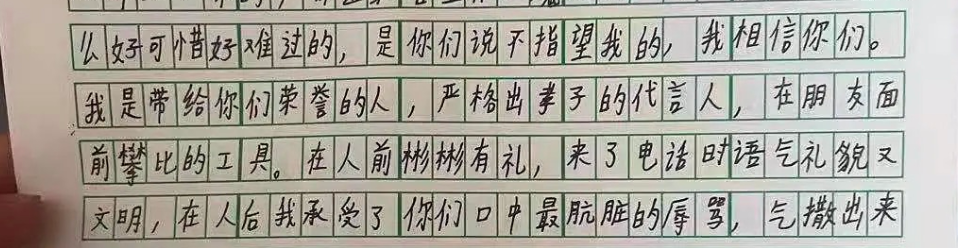 么好可惜好难过的，是你们说不指望我的，我相信你们。
我是带给你们荣誉的人，严格出孝子的代言人，在朋友面
前攀比的工具。在人前彬彬有礼，来了电话时语气礼貌又
文明，在人后我承受了你们口中最肮脏的辱骂，气撒出来